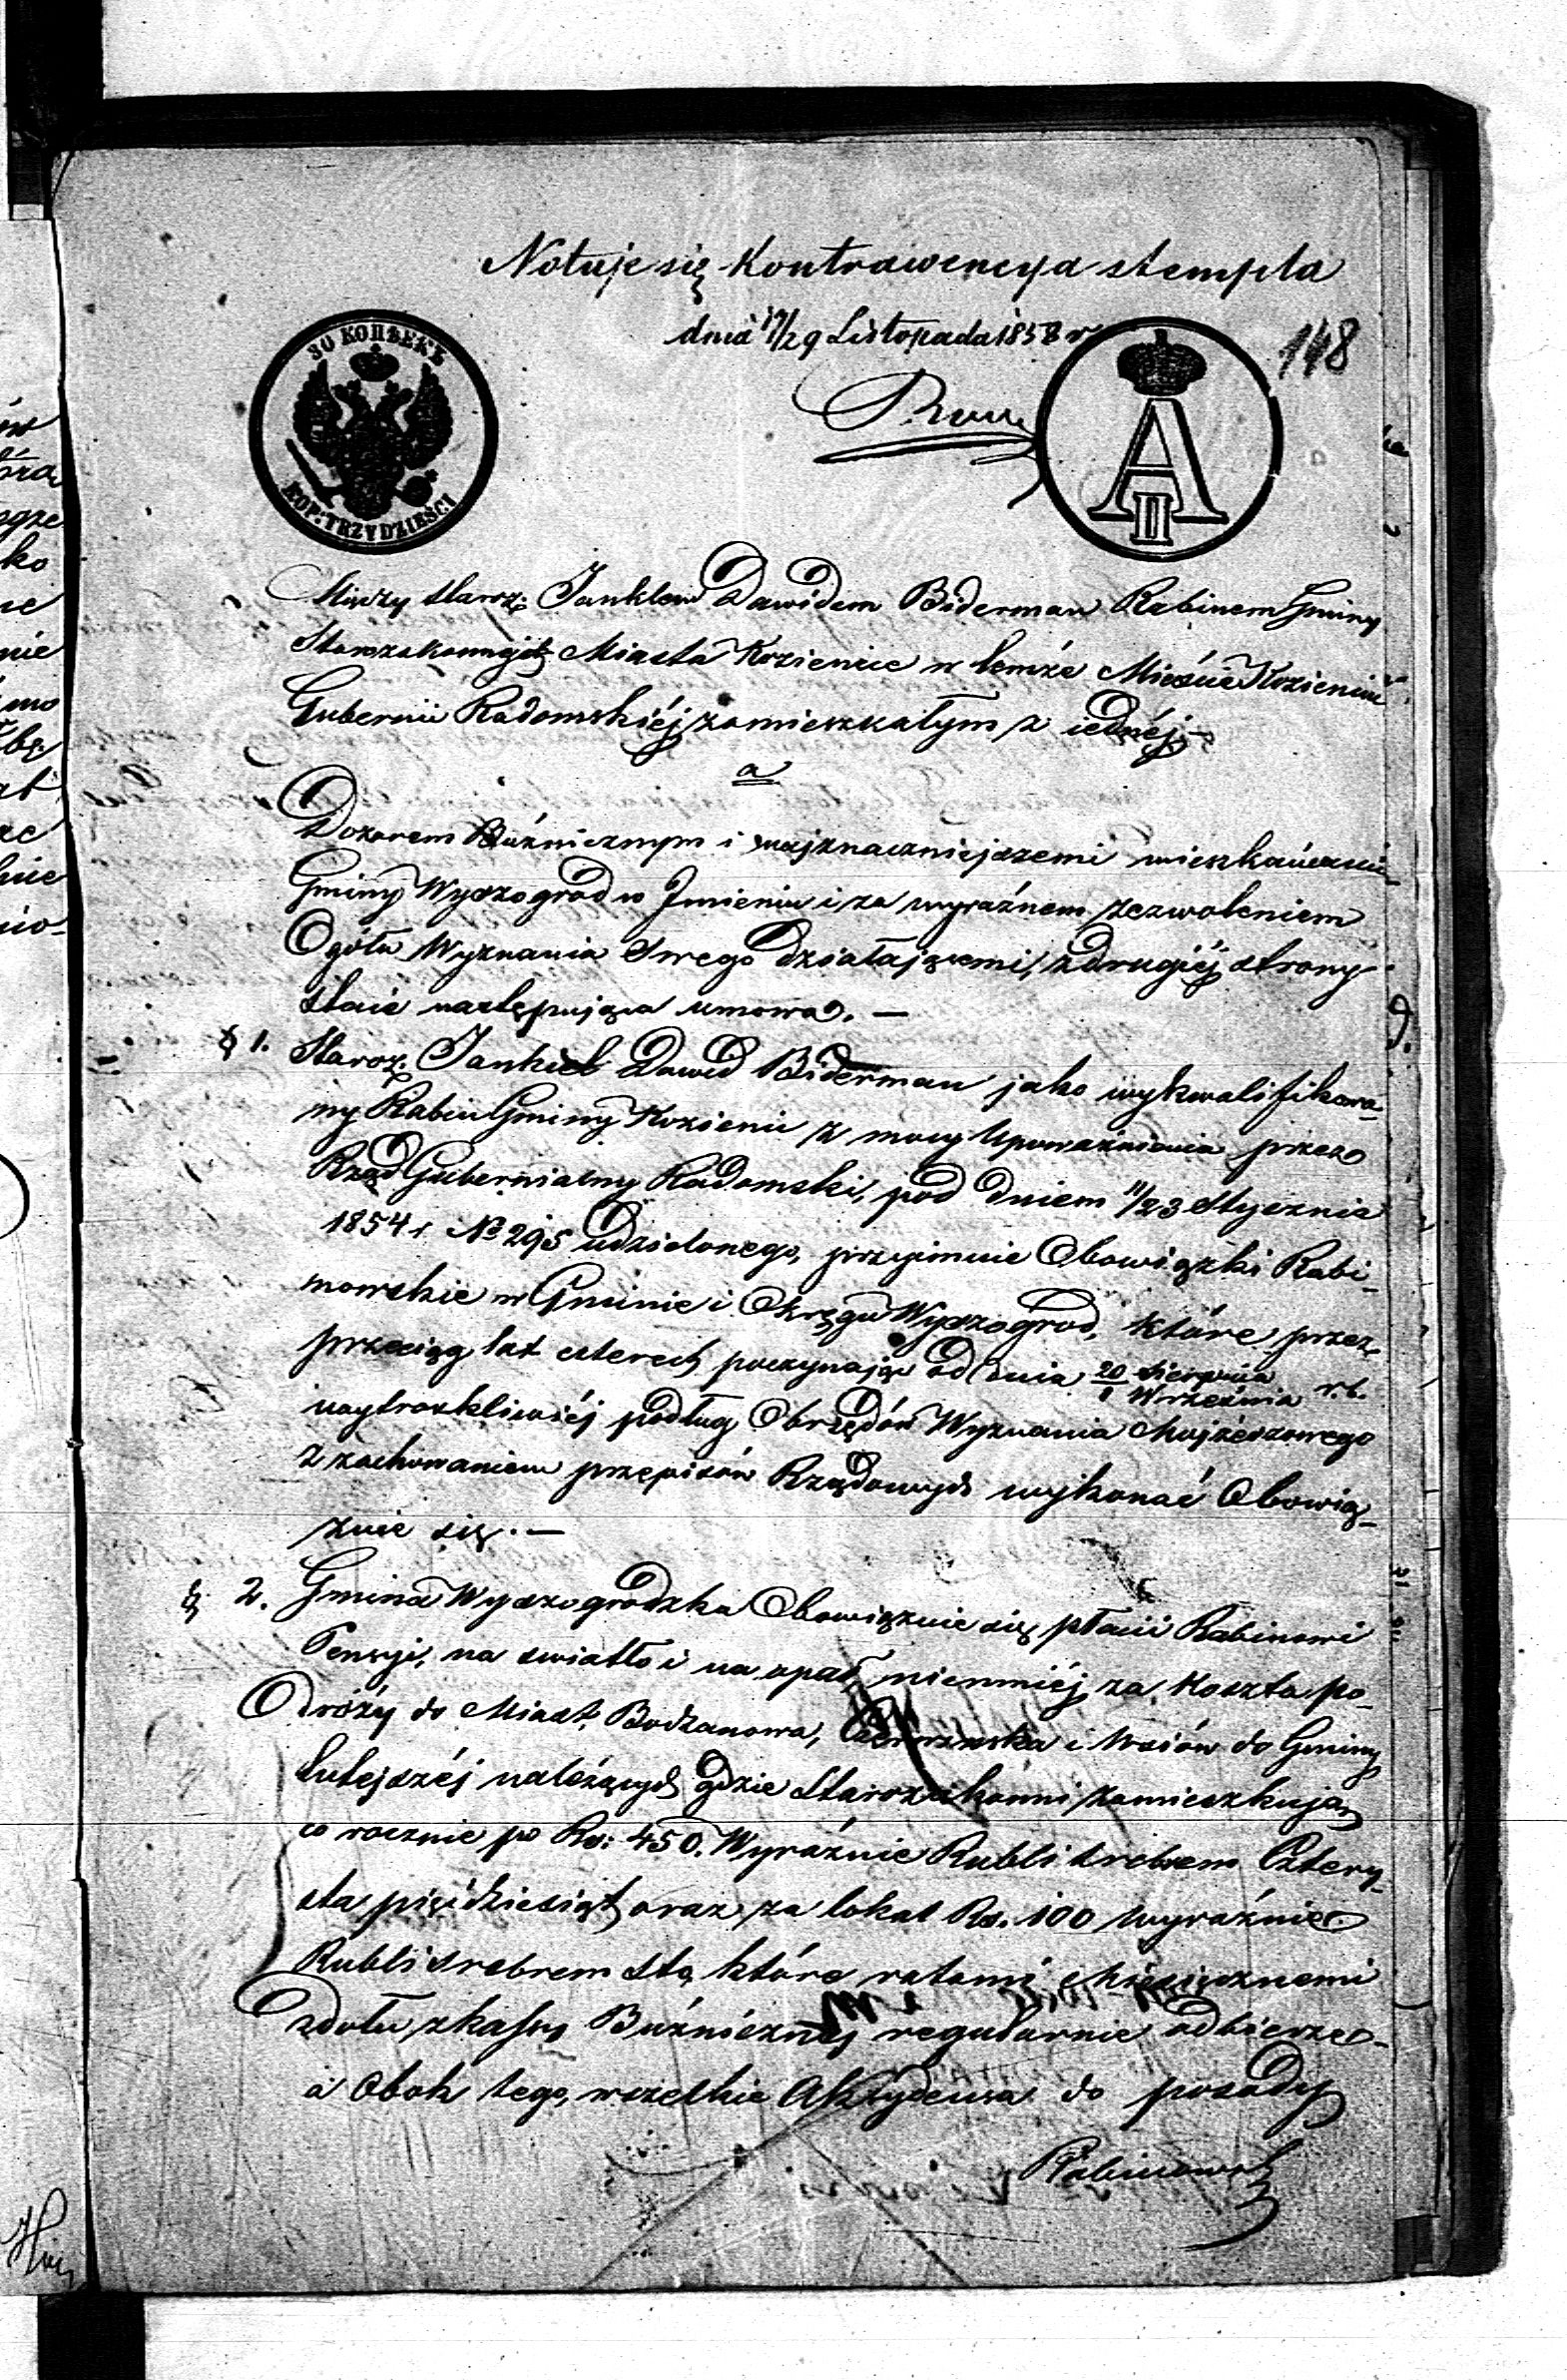 Notuje się kontrawencya stempla
dnia 17/29 Listopada 1858 r
148
30 КОПѢЕКЪ
KOP: TRZYDZIEŚCI
A II
Między Staroz: Janklem Dawidem Biderman Rabinem Gminy
Starozakonnych Miasta Kozienice w temże Mieście Kozienice
Gubernii Radomskiéj zamieszkałym z iednéj —
a
Dozorem Bóżnicznym i najznaczniejszemi mieszkańcami
Gminy Wyszogrod w Jmieniu i za wyraźnem zezwoleniem
Ogółu Wyznania swego działającemi, z drugiéj strony
staie następująca umowa. —
§ 1. Staroz. Jankiel Dawid Biderman jako wykwalifikowa-
ny Rabin Gminy Kozienic z mocy Upoważnienia przez
Rząd Gubernialny Radomski, pod dniem 11/23 Stycznia
1854 r No 295 udzielonego, przyimuie Obowiązki Rabi-
nowskie w Gminie i Okręgu Wyszogrod, które przez
przeciąg lat czterech poczynając od dnia 20 Sierpnia / 1 Września r. b.
naytroskliwiéj podług Obrzędów Wyznania Mojżeszowego
z zachowaniem przepisów Rządowych wykonać Obowią-
zuie się. —
§ 2. Gmina Wyszogrodzka Obowiązuie się płacić Rabinowi
Pensyi, na swiatło i na opał niemniéj za Koszta po-
dróży do Miast, Bodzanowa, Czerwińska i Wsiów do Gminy
tutejszéj należących gdzie Starozakonni zamieszkują
co rocznie po Rs: 450. Wyraźnie Rubli srebrem Cztery-
sta pięćdziesiąt oraz za lokal Rs. 100 wyraźnie
Rubli srebrem sto, które ratami miesięcznemi
zdołu z kassy Bóżnicznéj regularnie odbierze
a Obok tego, wszelkie Akcydensa do posady
Rabinowsk